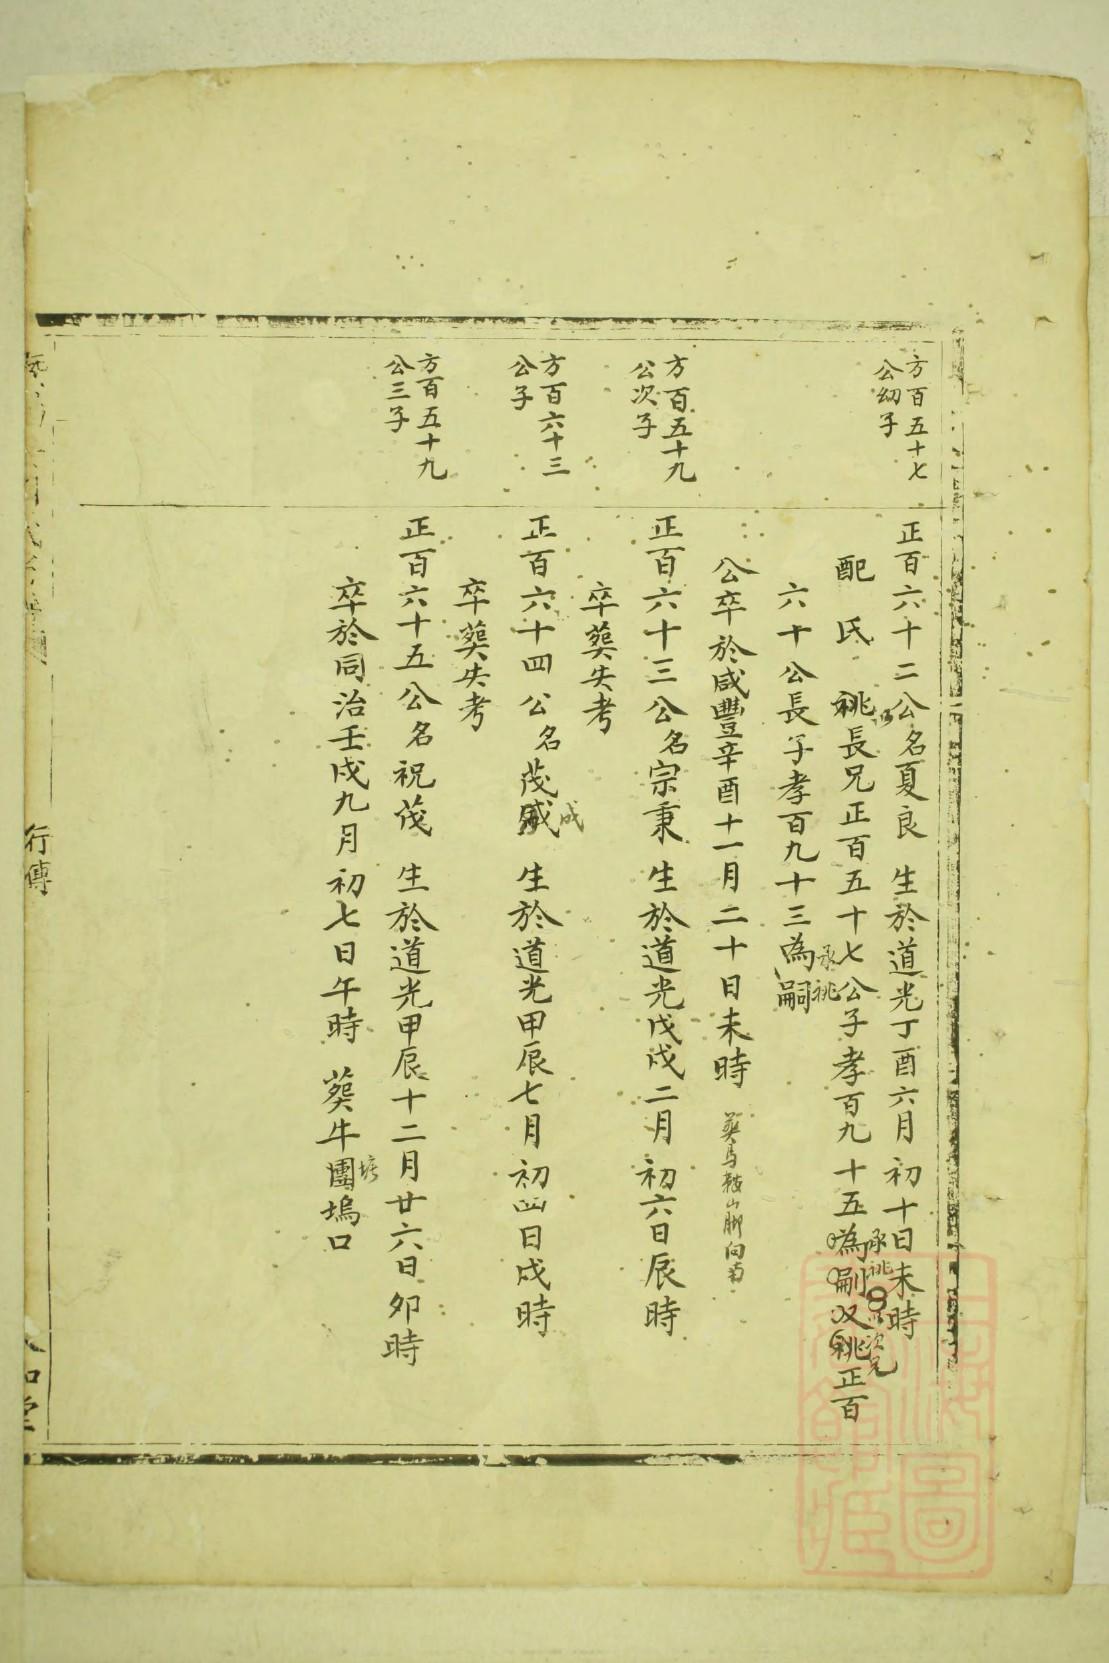 方百五十七
公幼子
正百六十二公名夏良 生於道光丁酉六月初十日未時
配 氏 祧長兄正百五十七公子孝百九十五為嗣双祧正百
以
承祧
以次兄
六十公長子孝百九十三為嗣
承祧
公卒於咸豐辛酉十一月二十日未時 葬馬鞍山脚向南
方百五十九
公次子
正百六十三公名宗秉 生於道光戊戌二月初六日辰時
卒葬失考
方百六十三
公子
正百六十四公名茂 生於道光甲辰七月初四日戌時
成
卒葬失考
方百五十九
公三子
正百六十五公名祝茂 生於道光甲辰十二月廿六日卯時
卒於同治壬戌九月初七日午時 葬牛團塢口
塘
行傳
上海圖
書館藏